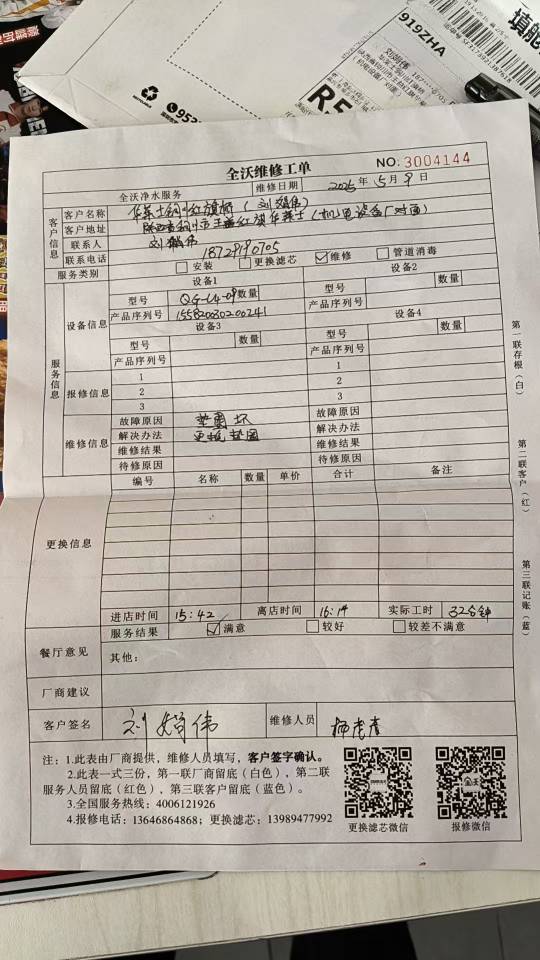 919ZHA
填舱
R5
全沃维修工单
NO: 3004144
全沃净水服务 维修日期 2025 年 5 月 9 日
客户信息
客户名称 华莱士铜川红旗街（刘
客户地址
联系人 刘 伟
联系电话 18729190705
服务类别 安装 更换滤芯 ☑维修 管道消毒
服务信息
设备信息
设备1 设备2
型号 QG-L4-09 数量 型号 数量
产品序列号 155820030200241 产品序列号
设备3 设备4
型号 数量 型号 数量
产品序列号 产品序列号
报修信息
1 1
2 2
3 3
维修信息
故障原因 垫圈坏 故障原因
解决办法 更换垫圈 解决办法
维修结果 维修结果
待修原因 待修原因
更换信息
编号 名称 数量 单价 合计 备注
进店时间 15:42 离店时间 16:14 实际工时 32分钟
餐厅意见
服务结果 ☑满意 较好 较差不满意
其他：
厂商建议
客户签名 刘 伟 维修人员
注：1.此表由厂商提供，维修人员填写，客户签字确认。
2.此表一式三份，第一联厂商留底（白色），第二联
服务人员留底（红色），第三联客户留底（蓝色）。
3.全国服务热线：4006121926
4.报修电话：13646864868；更换滤芯：13989477992
更换滤芯微信 报修微信
第一联存根（白）
第二联客户（红）
第三联记账（蓝）